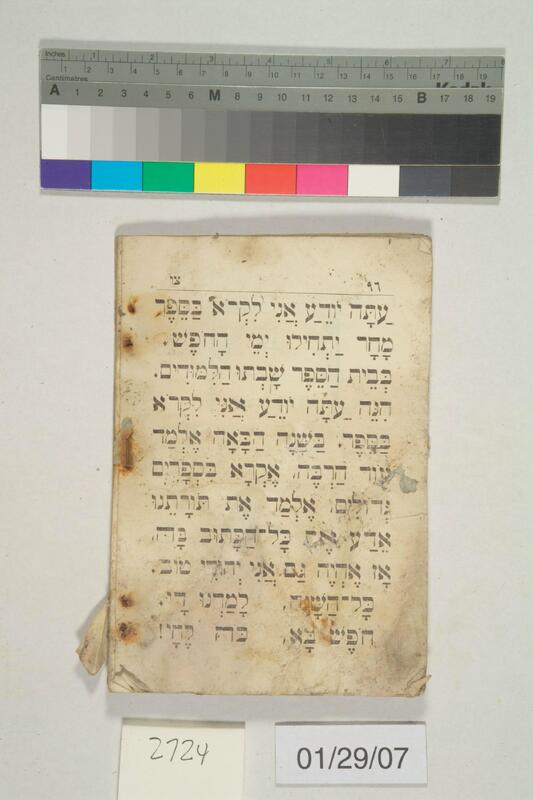 Inches 1 2 3 4 5 6 7 8
Centimetres 1 2 3 4 5 6 7 8 9 10 11 12 13 14 15 16 17 18 19
Kodak
A 1 2 3 4 5 6 M 8 9 10 11 12 13 14 15 B 17 18 19
צו
עַתָּה יוֹדֵעַ אֲנִי לִקְרֹא בַּסֵּפֶר
מָחָר יַתְחִילוּ יְמֵי הַחֹפֶשׁ.
בְּבֵית הַסֵּפֶר שָׁבְתוּ הַלִּמּוּדִים.
הִנֵּה עַתָּה יוֹדֵעַ אֲנִי לִקְרֹא
בַּסֵּפֶר. בַּשָּׁנָה הַבָּאָה אֶלְמַד
עוֹד הַרְבֵּה. אֶקְרָא בִּסְפָרִים
גְּדוֹלִים. אֶלְמַד אֶת תּוֹרָתֵנוּ
אֵדַע אֶת כָּל־הַכָּתוּב בָּהּ.
אָז אֶהְיֶה גַּם אֲנִי יְהוּדִי טוֹב.
כָּל־הַשָּׁנָה לָמַדְנוּ דָי.
חֹפֶשׁ בָּא. כֹּה לֶחָי!
2724
01/29/07